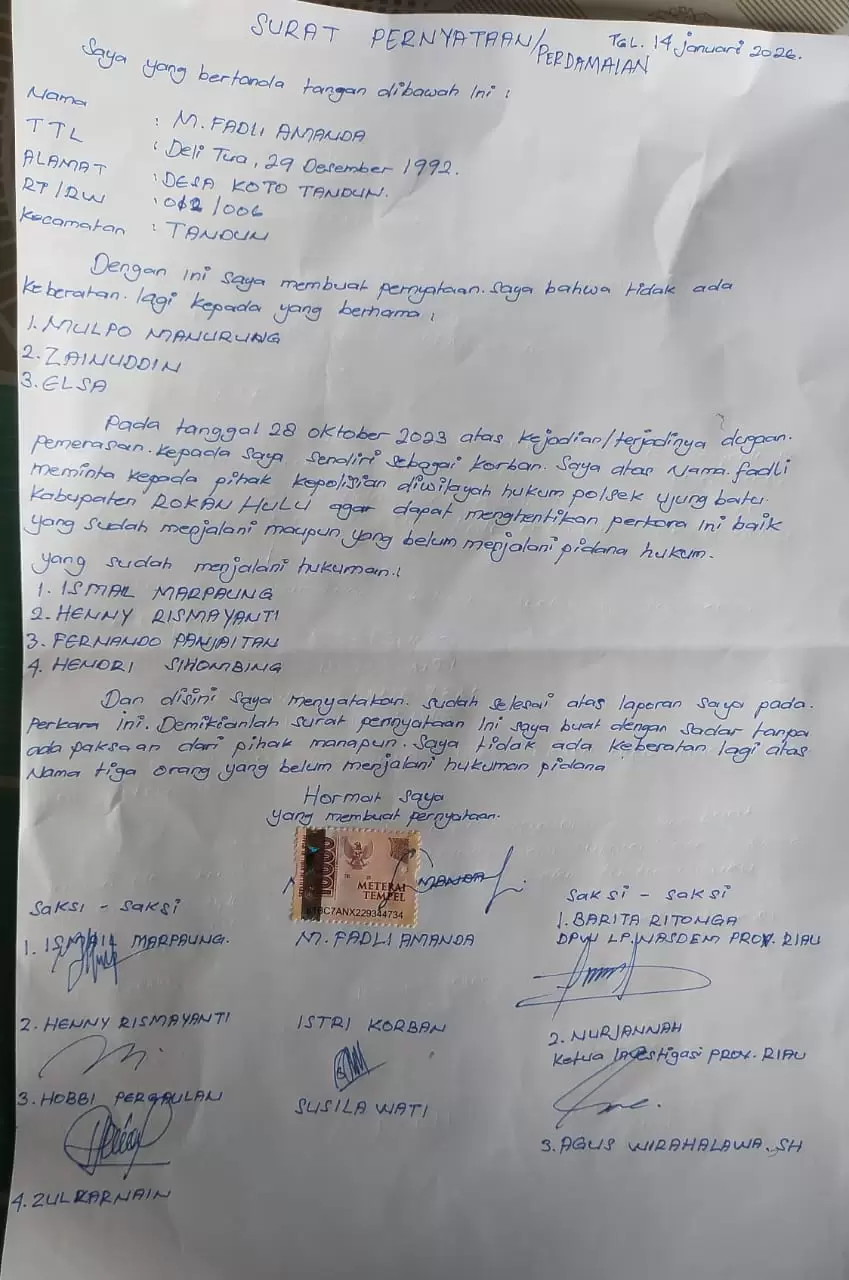 SURAT PERNYATAAN/PERDAMAIAN
TGL. 14 januari 2026.
Saya yang bertanda tangan dibawah Ini :
Nama : M. FADLI AMANDA
TTL : Deli Tua, 29 Desember 1992.
ALAMAT : DESA KOTO TANDUN.
RT/RW : 012/006
Kecamatan : TANDUN
Dengan ini saya membuat pernyataan. saya bahwa tidak ada
keberatan. lagi kepada yang bernama :
1. MULPO MANURUNG
2. ZAINUDDIN
3. ELSA
Pada tanggal 28 oktober 2023 atas kejadian/terjadinya dugaan.
pemerasan. kepada saya sendiri sebagai korban. Saya atas Nama. fadli
meminta kepada pihak kepolisian diwilayah hukum polsek ujung batu.
Kabupaten ROKAN HULU agar dapat menghentikan perkara ini baik
yang sudah menjalani maupun yang belum menjalani pidana hukum.
yang sudah menjalani hukuman :
1. ISMAIL MARPAUNG
2. HENNY RISMAYANTI
3. FERNANDO PANJAITAN
4. HENDRI SIHOMBING
Dan disini saya menyatakan. sudah selesai atas laporan saya pada.
perkara ini. Demikianlah surat pennyataan Ini saya buat dengan sadar tanpa
ada paksaan dari pihak manapun. Saya tidak ada keberatan lagi atas
Nama tiga orang yang belum menjalani hukuman pidana
Hormat saya
yang membuat pernyataan.
10000
METERAI
TEMPEL
C7ANX229344734
M. FADLI AMANDA
Saksi - saksi
1. ISMAIL MARPAUNG.
2. HENNY RISMAYANTI
3. HOBBI PERGAULAN
4. ZULKARNAIN
ISTRI KORBAN
SUSILA WATI
Saksi - saksi
1. BARITA RITONGA
DPW LP. NASDEM PROV. RIAU
2. NURJANNAH
Ketua Investigasi PROV. RIAU
3. AGUS WIRAHALAWA. SH